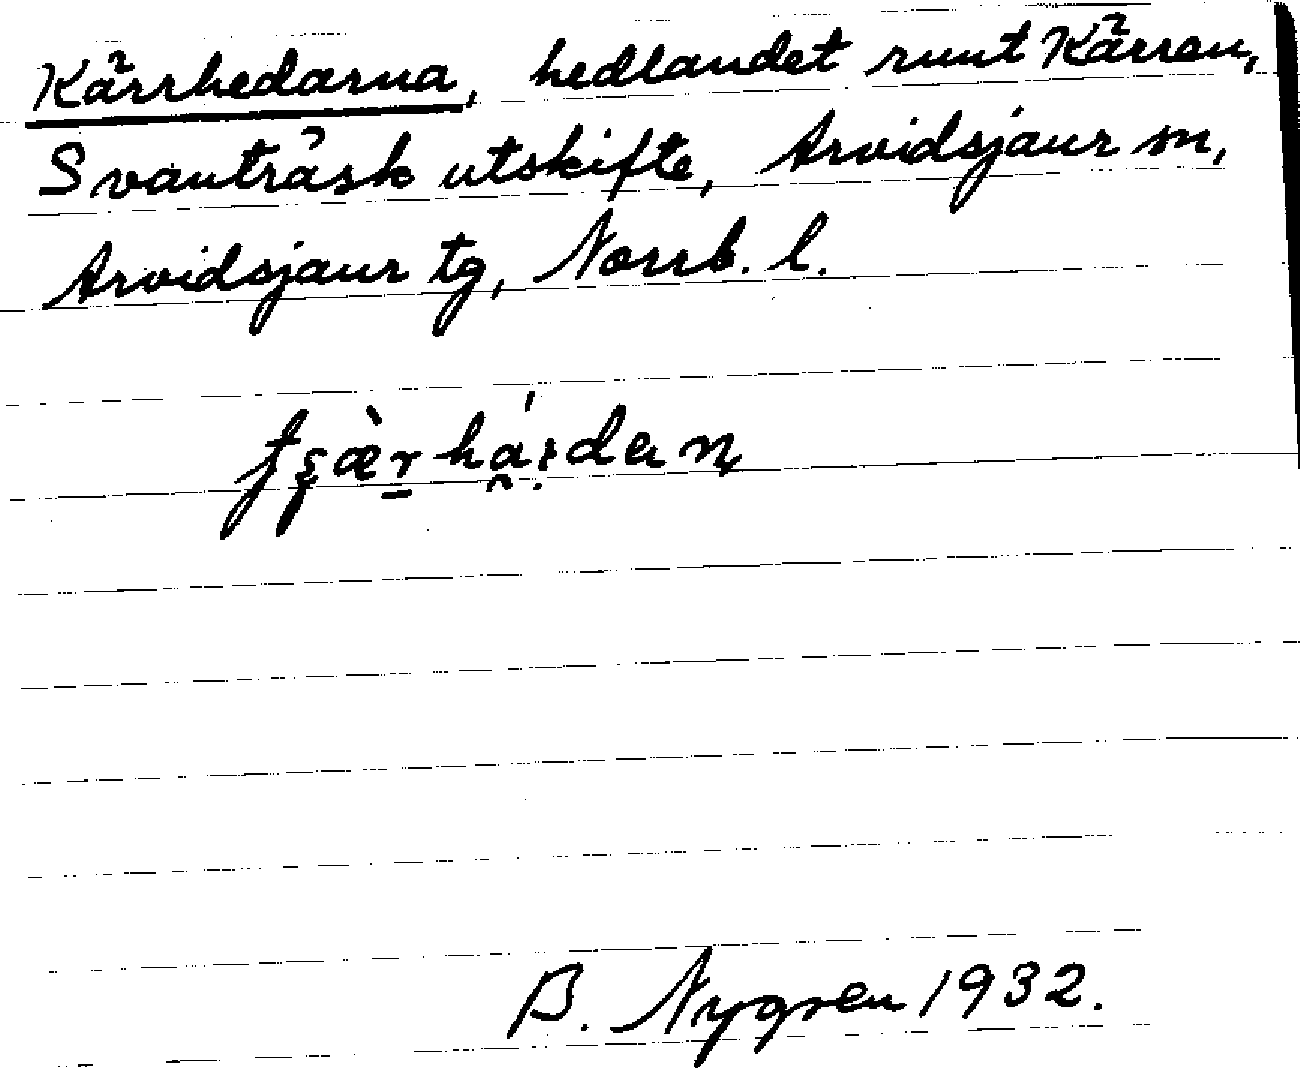 Kärrhedarna, hedlandet runt Kärren,
Svanträsk utskifte, Arvidsjaur sn,
Arvidsjaur tg, Norrb. l.
B. Nygren 1932.